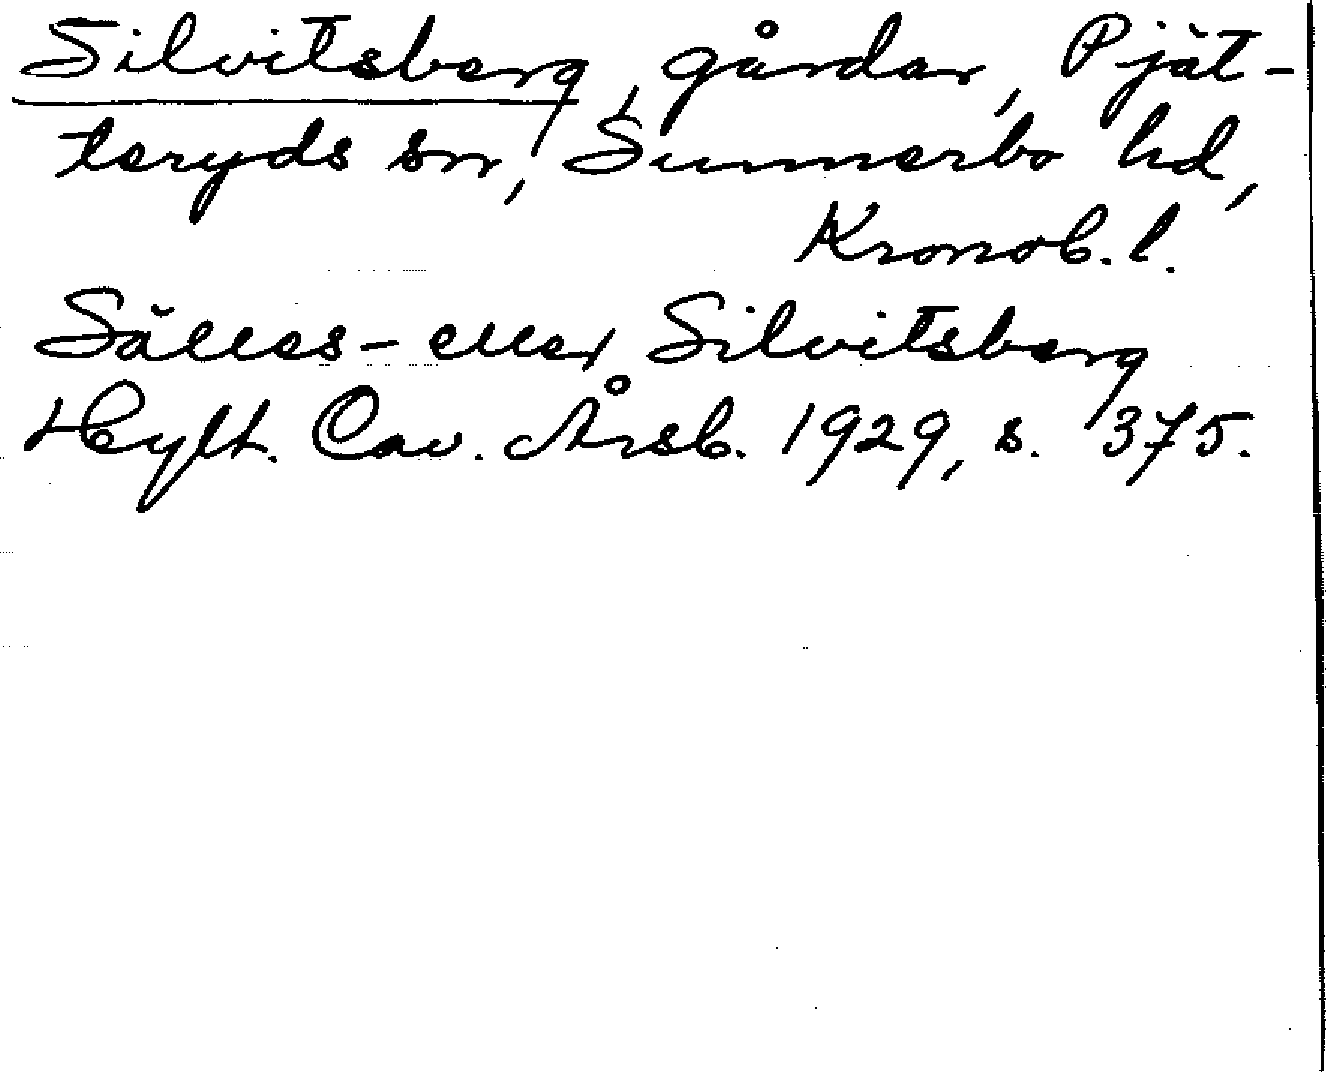 Silvitsberg, gårdar, Pjät-
teryds sn, Sunnerbo hd,
Kronob. l.
Sälles- eller Silvitsberg
Hylt. Cav. Årsb. 1929, s. 375.